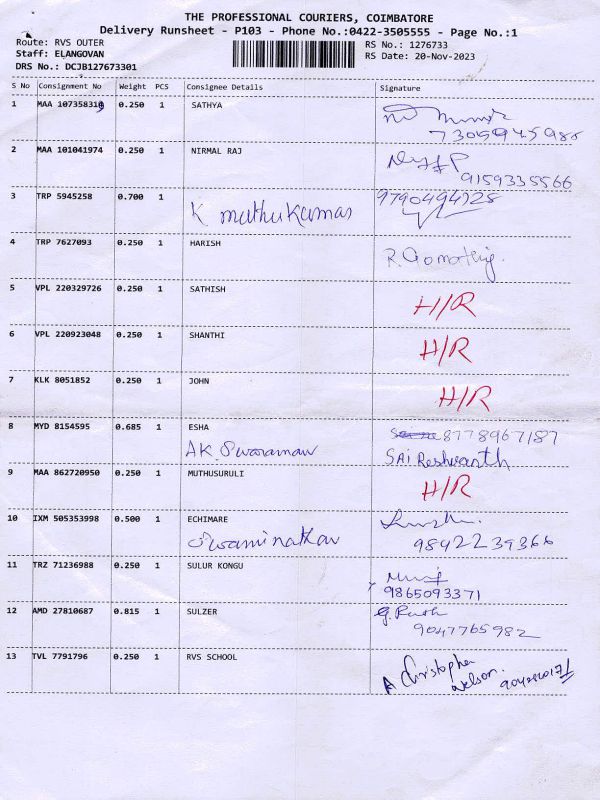 THE PROFESSIONAL COURIERS, COIMBATORE
Delivery Runsheet - P103 - Phone No.:0422-3505555 - Page No.:1
Route: RVS OUTER
RS No.: 1276733
Staff: ELANGOVAN
RS Date: 20-Nov-2023
DRS No.: DCJB127673301
S No Consignment No Weight PCS Consignee Details Signature
1 MAA 107358310 0.250 1 SATHYA
7305945986
2 MAA 101041974 0.250 1 NIRMAL RAJ
9159335566
3 TRP 5945258 0.700 1 9790494728
K muthukumar
4 TRP 7627093 0.250 1 HARISH
R. Gomathy.
5 VPL 220329726 0.250 1 SATHISH
H/R
6 VPL 220923048 0.250 1 SHANTHI
H/R
7 KLK 8051852 0.250 1 JOHN
H/R
8 MYD 8154595 0.685 1 ESHA 8778967187
AK. Sivaraman SAI Reshwanth
9 MAA 862720950 0.250 1 MUTHUSURULI
H/R
10 IXM 505353998 0.500 1 ECHIMARE
Swaminathan 9842239366
11 TRZ 71236988 0.250 1 SULUR KONGU
9865093371
12 AMD 27810687 0.815 1 SULZER
9047765982
13 TVL 7791796 0.250 1 RVS SCHOOL
A Christopher
Nelson.